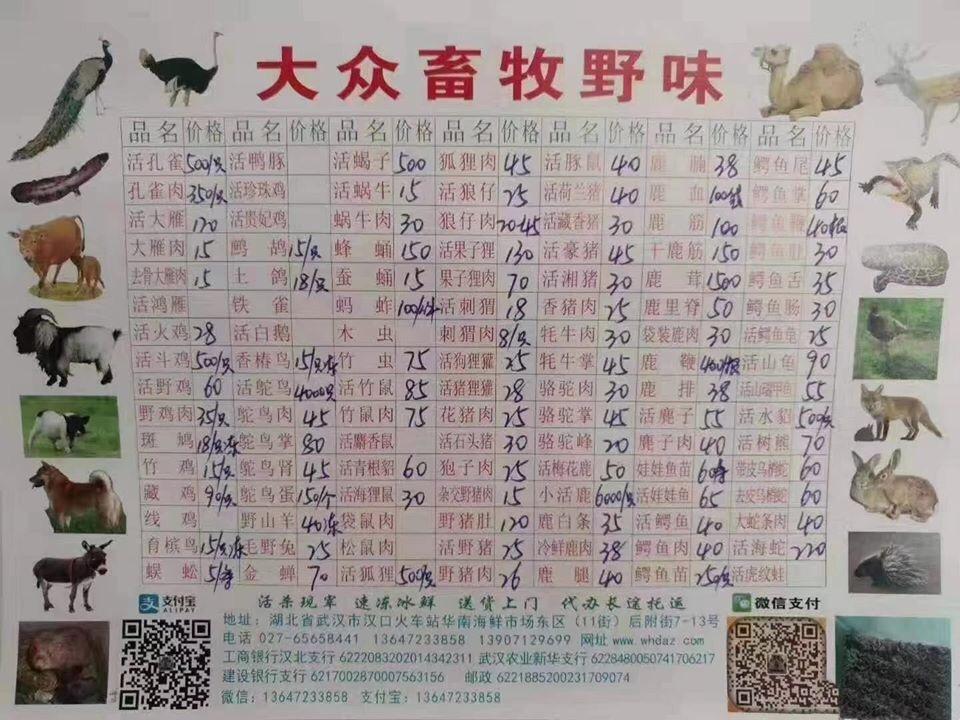 大众畜牧野味
品名 价格 品名 价格 品名 价格 品名 价格 品名 价格 品名 价格 品名 价格
活孔雀 500/只 活鸭豚 活蝎子 500 狐狸肉 45 活豚鼠 40 鹿 腩 38 鳄鱼尾 45
孔雀肉 350/只 活珍珠鸡 活蜗牛 15 活狼仔 25 活荷兰猪 40 鹿 血 鳄鱼掌 60
活大雁 120 活贵妃鸡 蜗牛肉 30 狼仔肉 20-45 活藏香猪 30 鹿 筋 100 鳄鱼鞭
大雁肉 15 鹧 鸪 15/只 蜂 蛹 150 活果子狸 130 活豪猪 45 干鹿筋 150 鳄鱼肚 30
去骨大雁肉 15 土 鸽 18/只 蚕 蛹 15 果子狸肉 70 活湘猪 30 鹿 茸 1500 鳄鱼舌 35
活鸿雁 铁 雀 蚂 蚱 活刺猬 18 香猪肉 25 鹿里脊 50 鳄鱼肠 30
活火鸡 28 活白鹅 木 虫 刺猬肉 8/只 牦牛肉 30 袋装鹿肉 30 活鳄鱼龟 25
活斗鸡 500/只 香椿鸟 15/只冻 竹 虫 75 活狗狸獾 25 牦牛掌 45 鹿 鞭 活山龟 90
活野鸡 60 活鸵鸟 4000只 活竹鼠 85 活猪狸獾 28 骆驼肉 30 鹿 排 38 55
野鸡肉 35/只 鸵鸟肉 45 竹鼠肉 75 花猪肉 25 骆驼掌 45 活麂子 55 活水貂 500/只
斑 鸠 18/只冻 鸵鸟掌 80 活麝香鼠 活石头猪 30 骆驼峰 20 麂子肉 40 活树熊 70
竹 鸡 15/只 鸵鸟肾 45 活青根貂 60 狍子肉 25 活梅花鹿 50 娃娃鱼苗 带皮乌梢蛇 60
藏 鸡 90/只 鸵鸟蛋 150/个 活海狸鼠 30 杂交野猪肉 15 小活鹿 6000/只 活娃娃鱼 65 去皮乌梢蛇 60
线 鸡 野山羊 40冻 袋鼠肉 野猪肚 120 鹿白条 35 活鳄鱼 40 大蛇条肉 40
育槟鸟 15/只冻 毛野兔 25 松鼠肉 活野猪 25 冷鲜鹿肉 38 鳄鱼肉 40 活海蛇 220
蜈 蚣 金 蝉 70 活狐狸 500/只 野猪肉 26 鹿 腿 40 鳄鱼苗 250/只 活虎纹蛙
支付宝
ALIPAY
活杀现宰 速冻冰鲜 送货上门 代办长途托运
微信支付
地址：湖北省武汉市汉口火车站华南海鲜市场东区（11街）后附街7-13号
电话 027-65658441 13647233858 13907129699 网址 www.whdaz.com
工商银行汉北支行 6222083202014342311 武汉农业新华支行 6228480050741706217
建设银行支行 6217002870007563156 邮政 6221885200231709074
微信：13647233858 支付宝：13647233858